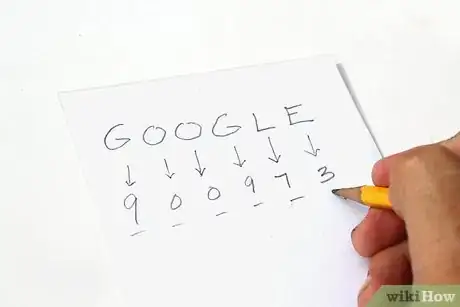 GOOGLE
↓ ↓ ↓ ↓ ↓ ↓
9 0 0 9 7 3
wikiHow